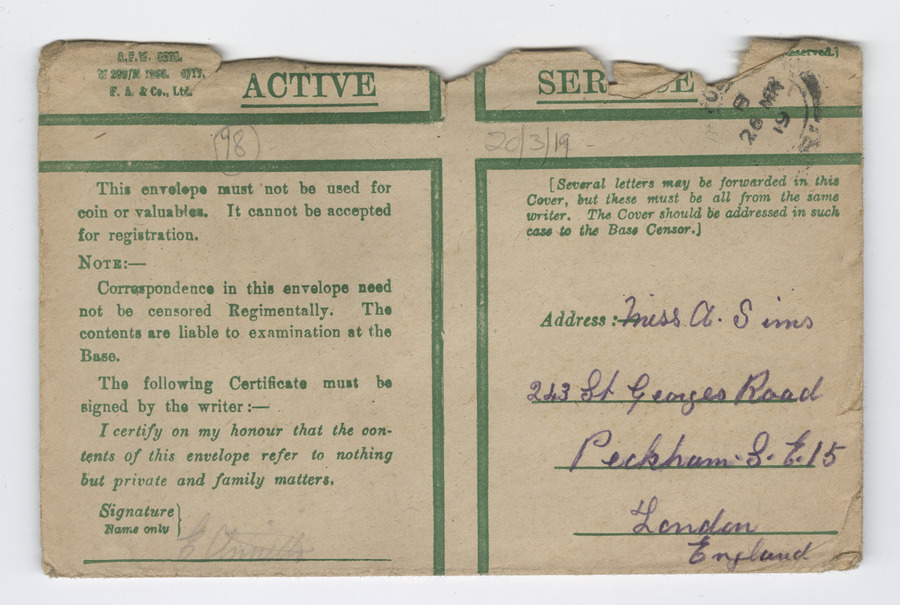 A.F.W.
F. A. & Co., Ltd.
ACTIVE
SER
E
eserved.]
26 MR
19
98
20/3/19 -
This envelope must not be used for
coin or valuables. It cannot be accepted
for registration.
NOTE:—
Correspondence in this envelope need
not be censored Regimentally. The
contents are liable to examination at the
Base.
The following Certificate must be
signed by the writer:—
I certify on my honour that the con-
tents of this envelope refer to nothing
but private and family matters.
Signature
Name only
[Several letters may be forwarded in this
Cover, but these must be all from the same
writer. The Cover should be addressed in such
case to the Base Censor.]
Address: Miss A. Sims
243 St Georges Road
Peckham. S. E. 15
London
England